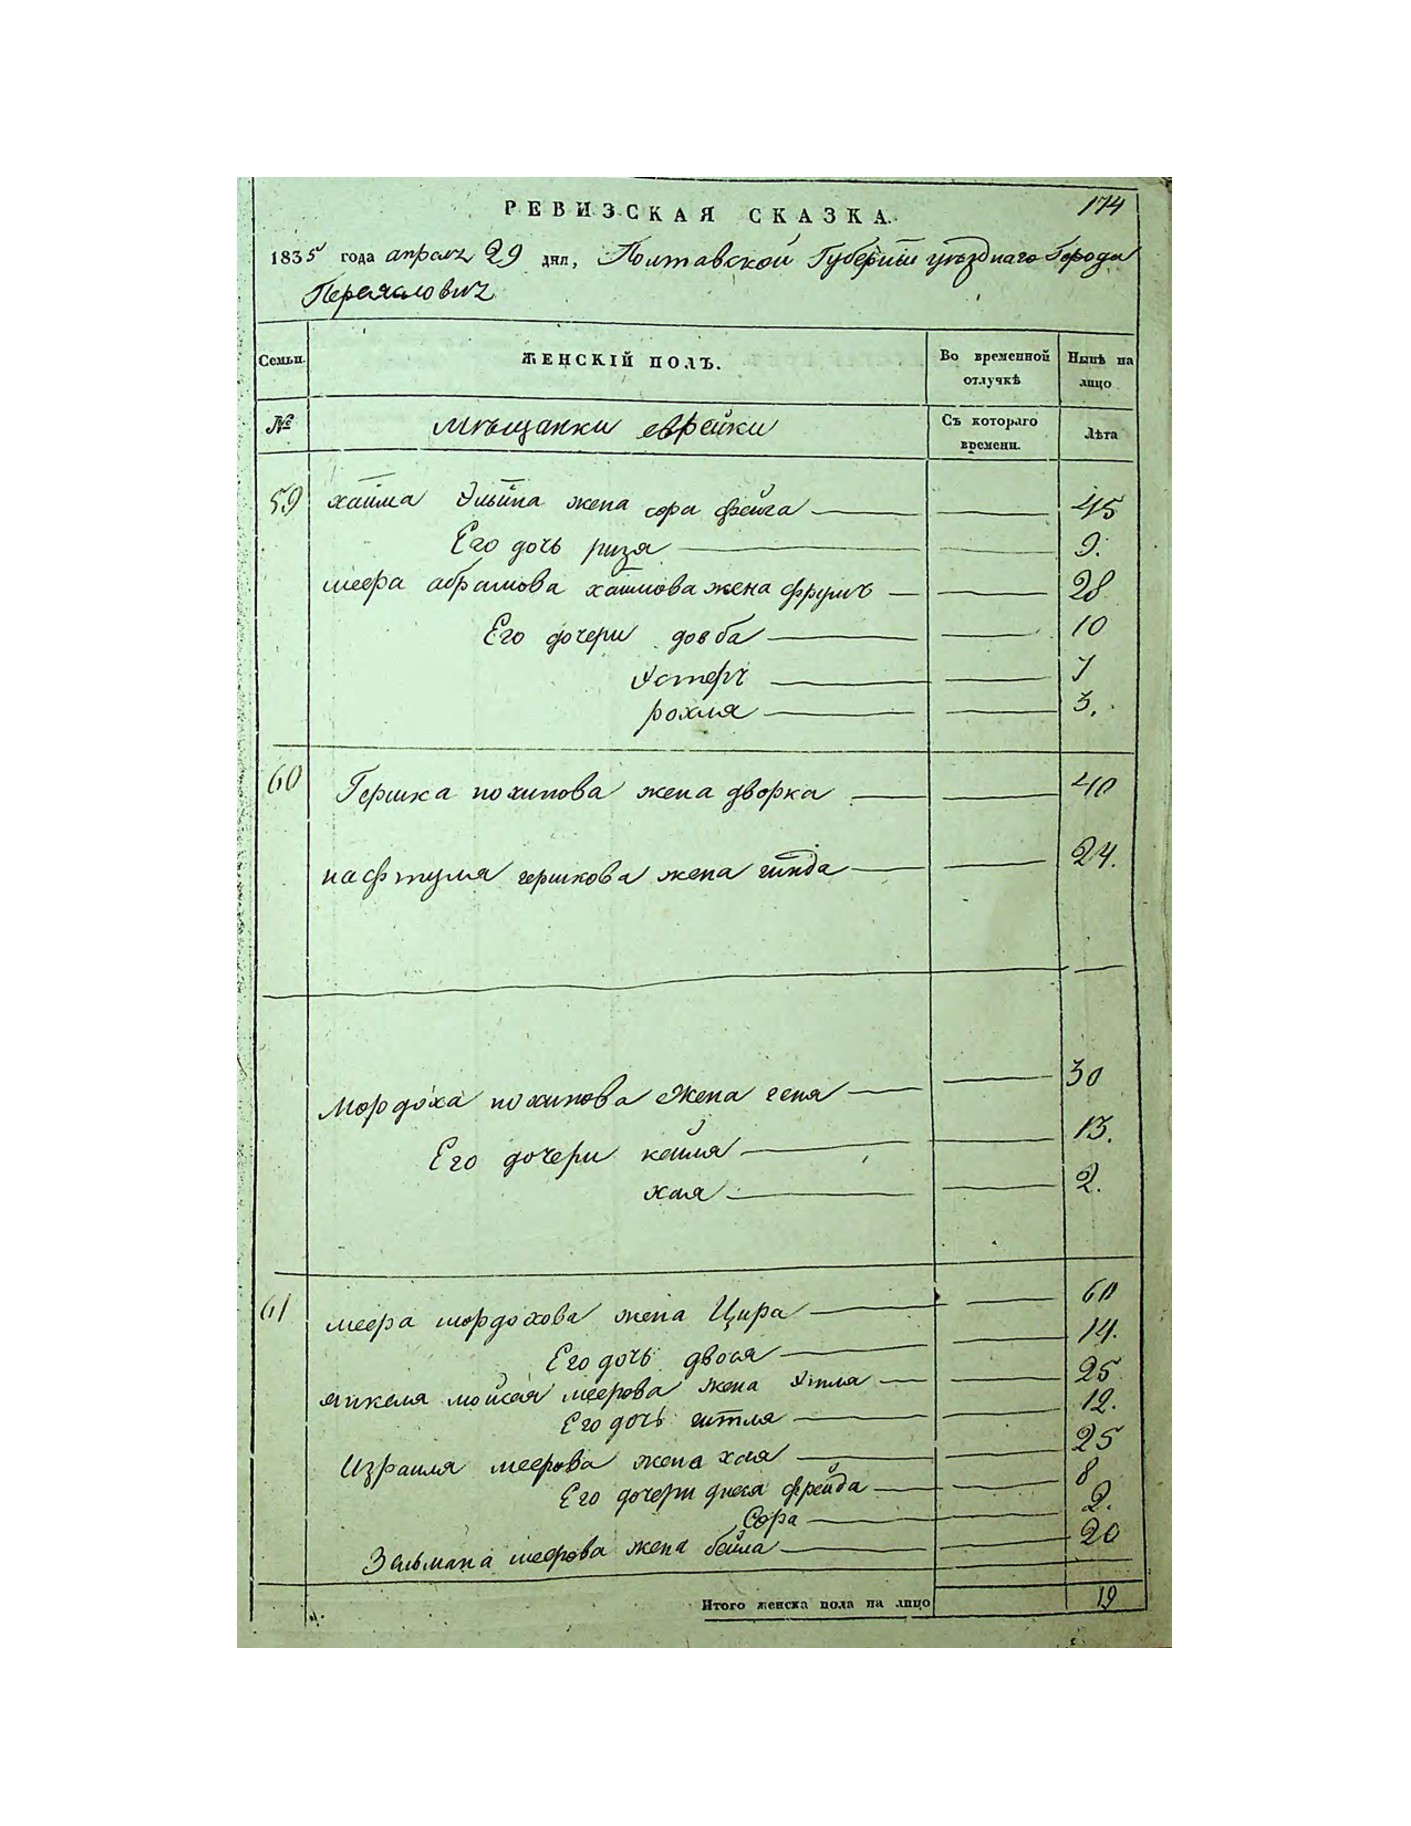 174
РЕВИЗСКАЯ СКАЗКА.
1835 года апреля 29 дня, Полтавской Губернии уѣзднаго Города
Переяславля
Семьи. ЖЕНСКІЙ ПОЛЪ. Во временной отлучкѣ Нынѣ на лицо
№ мѣщанки еврейки Съ котораго времени. Лѣта
59 хаима Эльина жена сора фейга 45
Его дочь риза 9.
меера абрамова хаимова жена фрумъ 28
Его дочери довба 10
Эстеръ 7
рохля 3.
60 Гершка нохимова жена дворка 40
нафтуля гершкова жена гинда 24.
Мордоха нохимова жена геня 30
Его дочери кейля 13.
хая 2.
61 меера мордохова жена Цира 60
Его дочь двося 14.
янкеля мойсея меерова жена Этля 25
Его дочь гитля 12.
Израиля меерова жена хая 25
Его дочери фрейда 8
Сора 2.
Зельмана меерова жена бейла 20
Итого женска пола на лицо 19